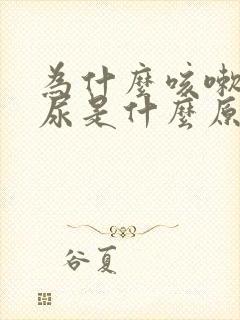 為什麼咳嗽
尿是什麼原
谷夏